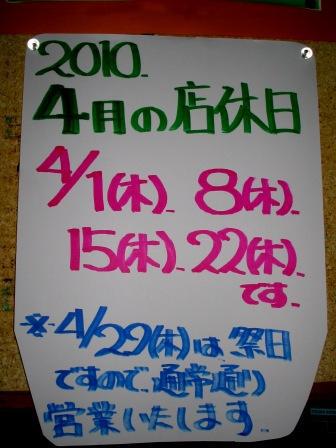 2010.
4月の店休日
4/1(木)、8(木)、
15(木)、22(木)、
です。
※4/29(木)は祭日
ですので、通常通り
営業いたします。